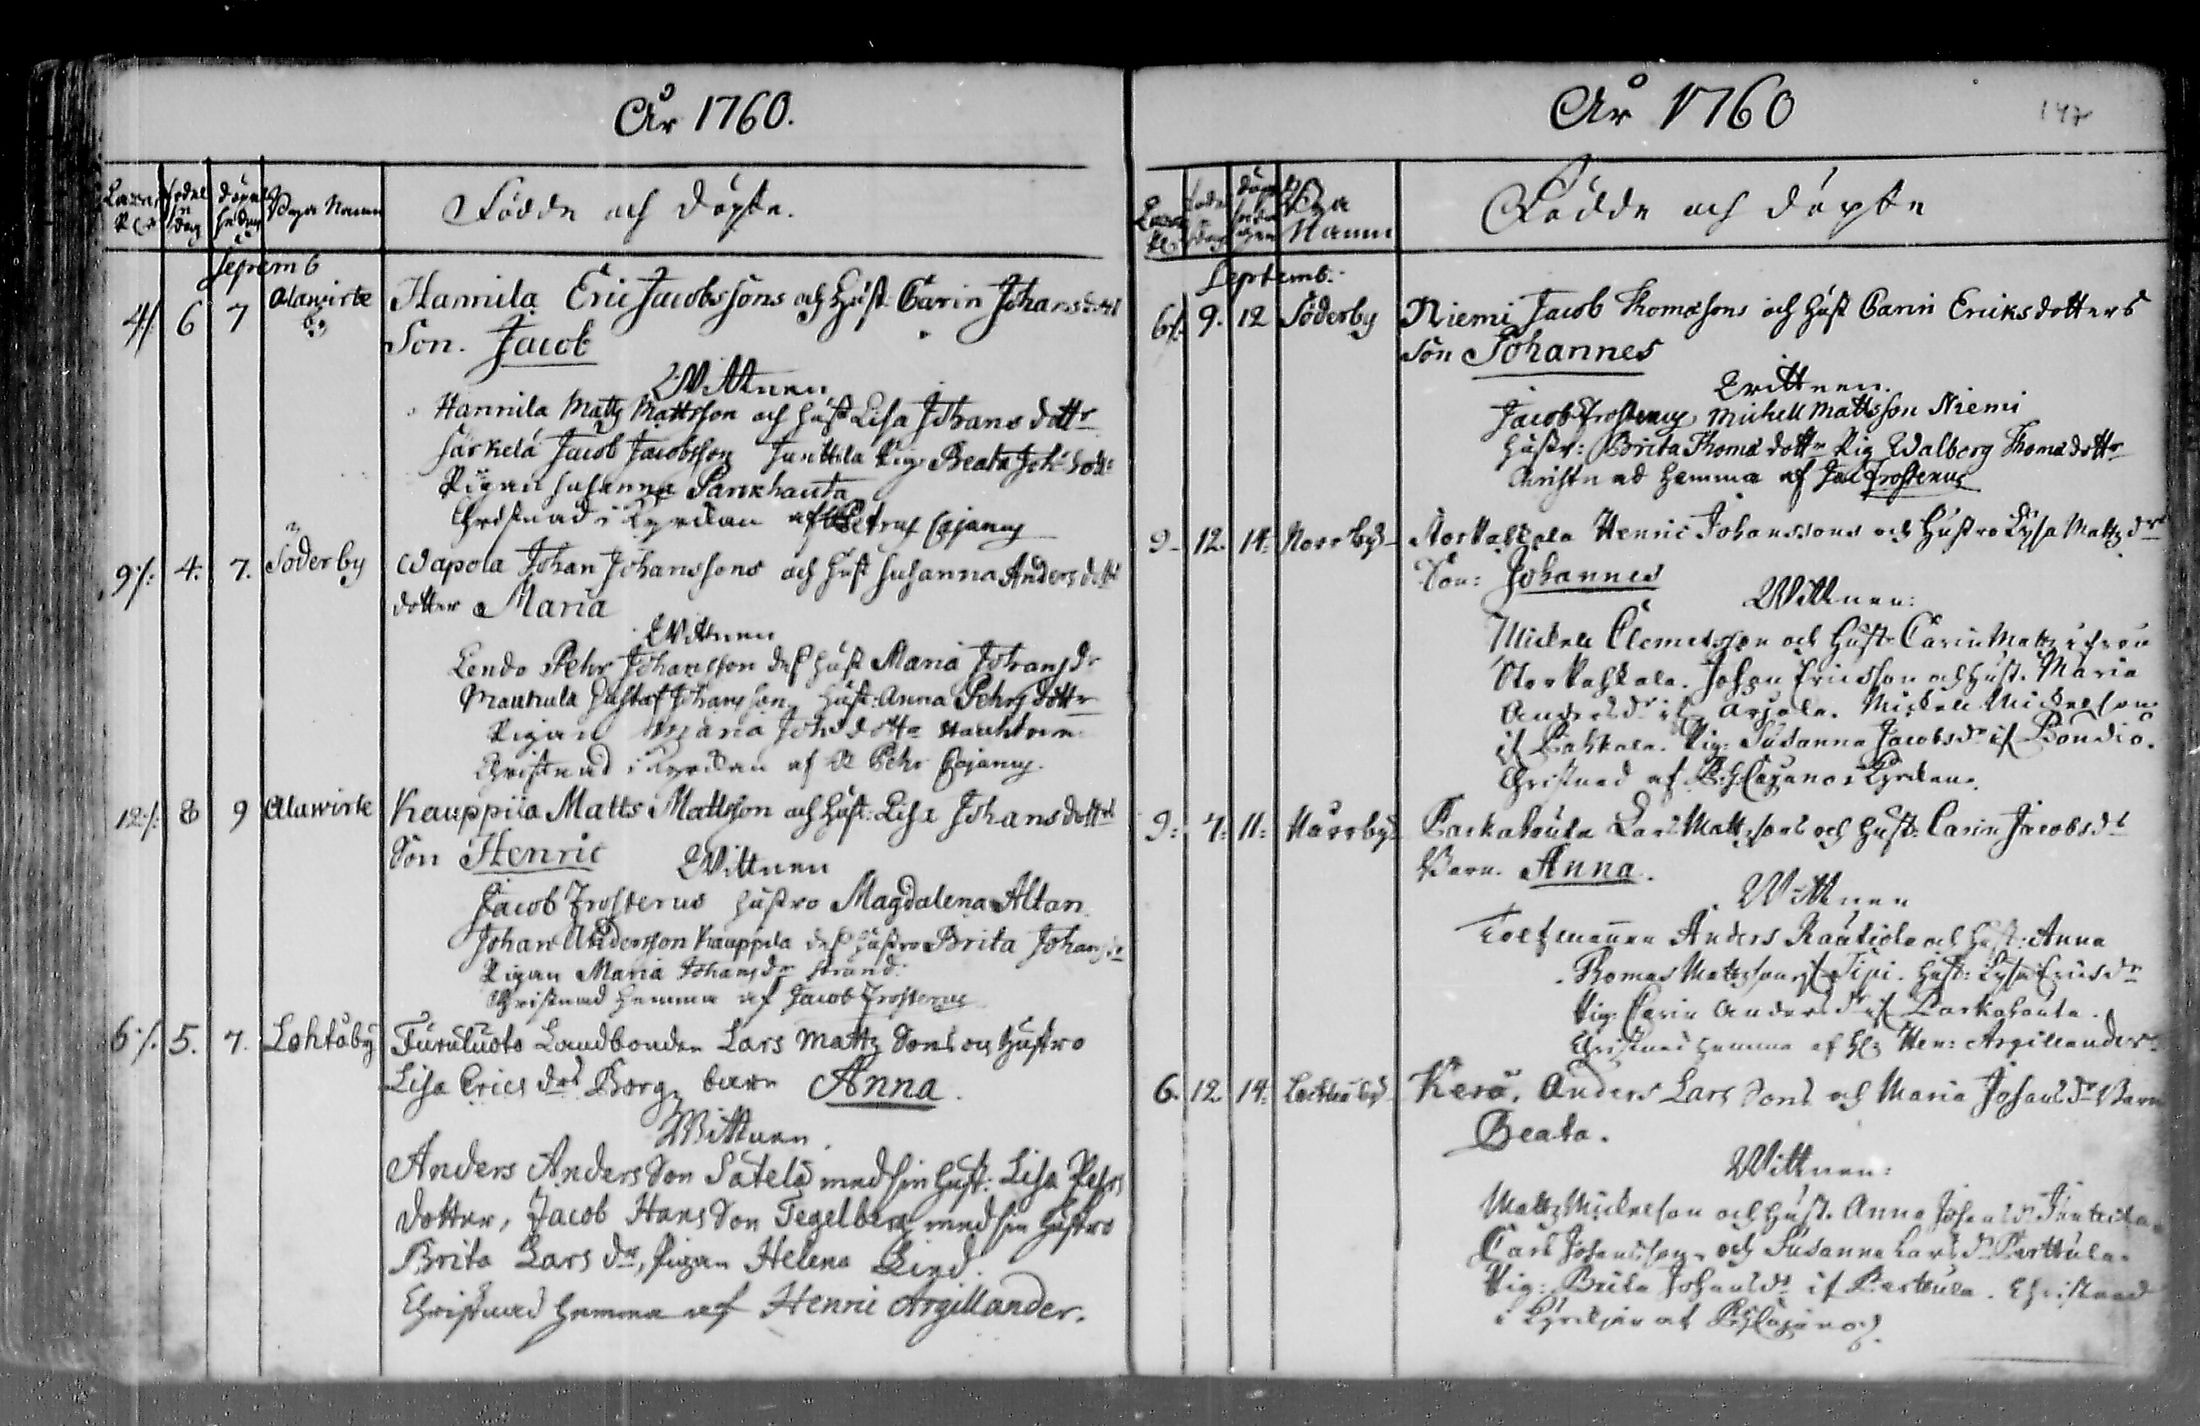 År 1760.
Födde och döpte.
Septemb
4/. 6 7 Alawirte by Hannila Eric Jacobssons och Hust. Carin Johansdotters
Son. Jacob
Wittnen
Hannila Matts Mattsson och Hust Lisa Johans dottr
Särkelä Jacob Jacobsson Junttila Pig. Beata Joh: dott:
Pigan Susanna Parckhauta
Christnad i Kyrckan af Petrus Cajanus
9/: 4. 7. Söderby Wapola Johan Johanssons och Hust Susanna Anders dotters
dotter Maria
Wittnen
Lendo Pehr Johansson dess Hust Maria Johansdr
Maunula Gustaf Johansson, Hust: Anna Pehrs dottr
Pigan Maria Johs dottr
Christnad i Kyrckan af Pehr Cajanus.
12/: 8 9 Alawirte Kauppila Matts Mattsson och Hust: Lisa Johans dotters
Son Henric
Wittnen
Jacob Frosterus Hustro Magdalena Altan
Johan Andersson Kauppila dess Hustro Brita Johansdr
Pigan Maria Johansdr Strand.
Christnad hemma af Jacob Frosterus
6/. 5. 7. Lohtåby Furuluoto Landbonden Lars Matts Sons och Hustro
Lisa Erics drs Borg, barn Anna.
Wittnen.
Anders Anders Son Såtelä med sin Hust: Lisa Pehrs
dotter, Jacob Hans Son Tegelberg med sin Hustro
Brita Lars dr, Pigan Helena Lind.
Christnad hemma af Henric Argillander.
År 1760
147
Födde och döpte
Septemb:
6/. 9. 12 Söderby Niemi Jacob Thomæsons och Hust Carin Eriksdotters
Son Johannes
Wittnen.
Jacob Frosterus, Michell Mattsson Niemi
Hustr: Brita Thomæ dottr Pig Walborg Thomædottr
Christnad hemma af Jac Frosterus
9. 12. 14. Norrby Storkahkola Henric Johanssons och Hustro Lysa Matts drs
Son: Johannes
Wittnen:
Mickell Clemetsson och Hust. Carin Matts
Storkahkala. Johan Ericsson och Hust. Maria
Andersdr if Arjala. Mickell Mickelsson
if Kahkala. Pig: Susanna Jacobsdr if Pondio.
Christnad af P. Cajanus i Kyrckan.
9: 7: 11: Norrby Parkahauta Lars Mattssons och Hust: Carin Jacobsdr
Barn. Anna.
Wittnen
Tolfmannen Anders Rautiola och Hust: Anna
Thomas Mattsson if Sipi. Hust: Lysa Ericsdr
Pig: Carin Anders dr if Parkahauta.
Christnad hemma af Hen: Argillander.
6. 12. 14. Lochtåby Kerö. Anders Lars Sons och Maria Johans drs Barn
Beata.
Wittnen:
Matts Mickelson och Hust. Anna Johansdr
Carl Johansson och Susanna Larsdr Perttula.
Pig: Brita Johansdr if Perttula. Christnad
i Kyrckan af P. Cajanus.